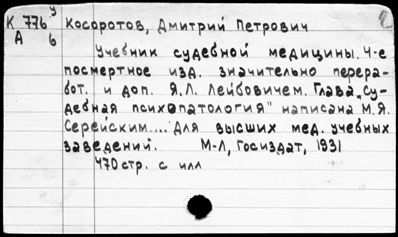 К 776 у Косоротов, Дмитрий Петрович
А 6
Учебник судебной медицины. 4-е
посмертное изд. значительно перера-
бот. и доп. Я.Л. Лейбовичем. Глава „Су-
дебная психопатология" написана М.Я.
Серейским.... Для высших мед. учебных
заведений. М-Л, Госиздат, 1931
470 стр. с илл